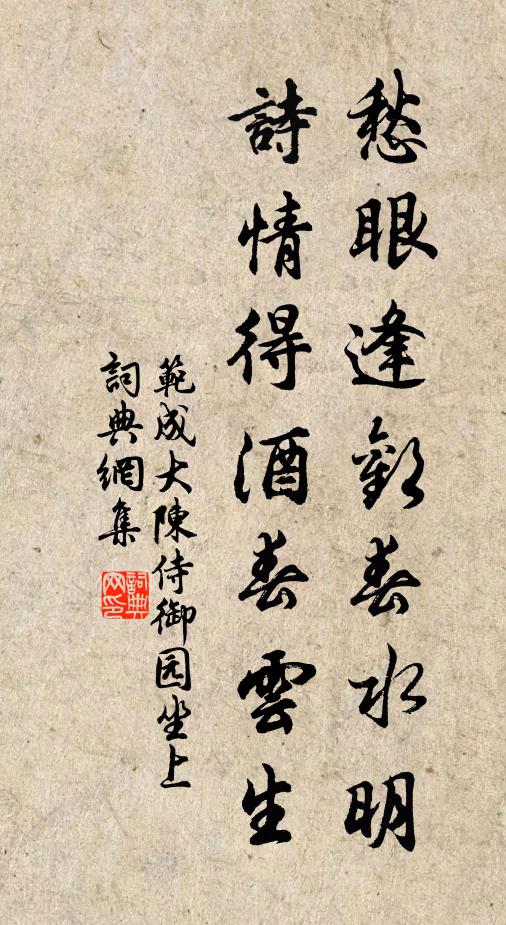 愁眼逢歡春水明
詩情得酒春雲生
範成大陳侍御园坐上
詞典網集
詞典网印